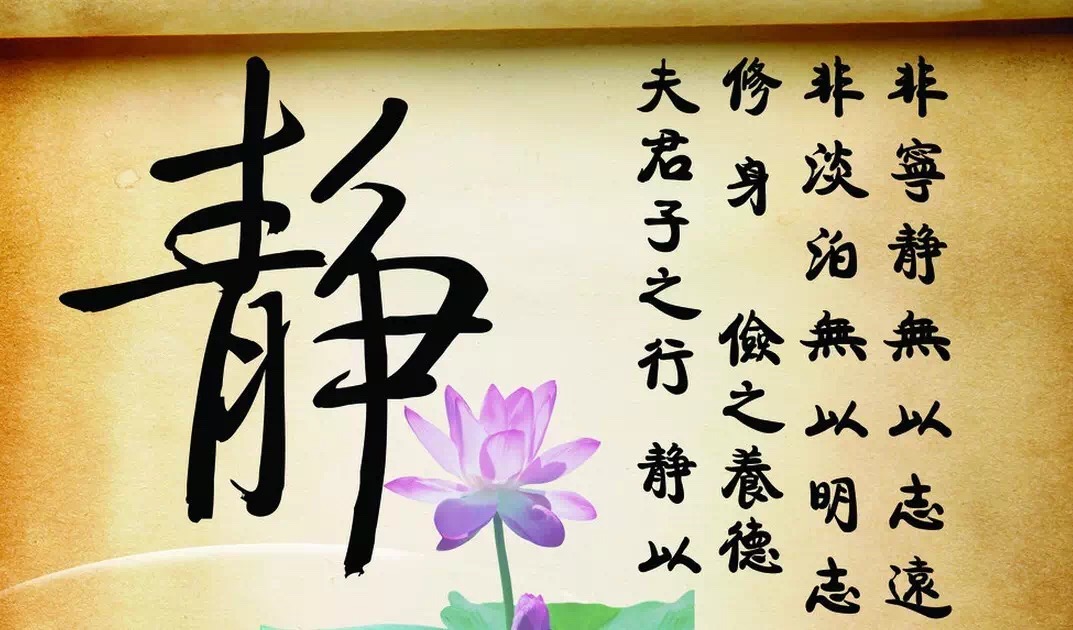 静
夫君子之行 静以
修身 儉之養德
非淡泊無以明志
非寧静無以志遠